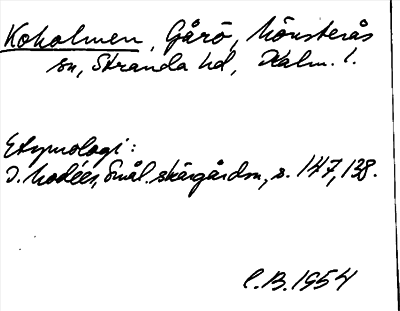 Kokolmen, Gårö, Mönsterås
sn, Stranda hd, Kalm. l.
Etymologi:
I. Modéer, Smål. skärgårdsn, s. 147, 138.
C.B. 1954